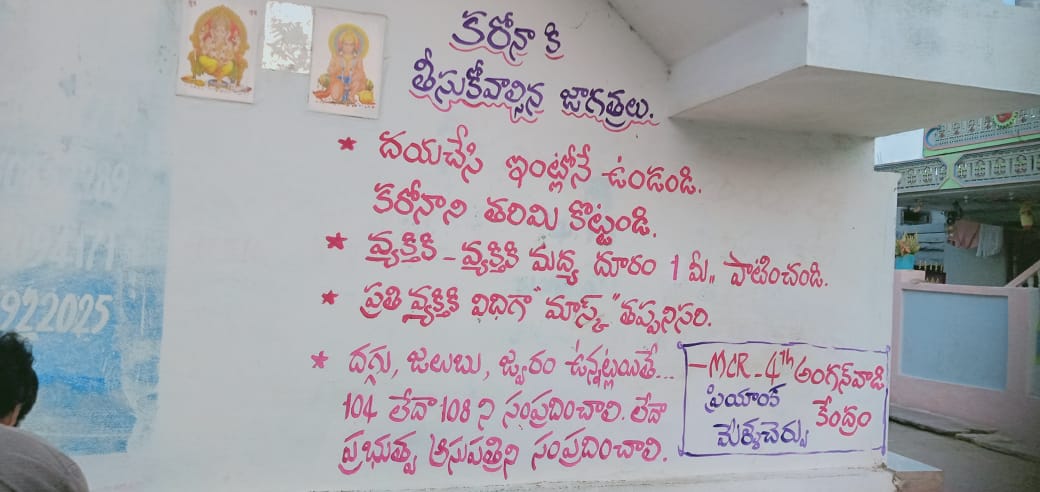 కరోనా కి
తీసుకోవాల్సిన జాగత్రలు.
* దయచేసి ఇంట్లోనే ఉండండి.
కరోనాని తరిమి కొట్టండి.
* వ్యక్తికి - వ్యక్తికి మద్య దూరం 1 మీ,, పాటించండి.
* ప్రతి వ్యక్తికి విధిగా "మాస్క్" తప్పనిసరి.
* దగ్గు, జలుబు, జ్వరం ఉన్నట్లయితే...
104 లేదా 108 ని సంప్రదించాలి. లేదా
ప్రభుత్వ ఆసుపత్రిని సంప్రదించాలి.
- MCR - 4th అంగన్‌వాడి
కేంద్రం
ప్రియాంక
మేళ్ళచెర్వు
922025